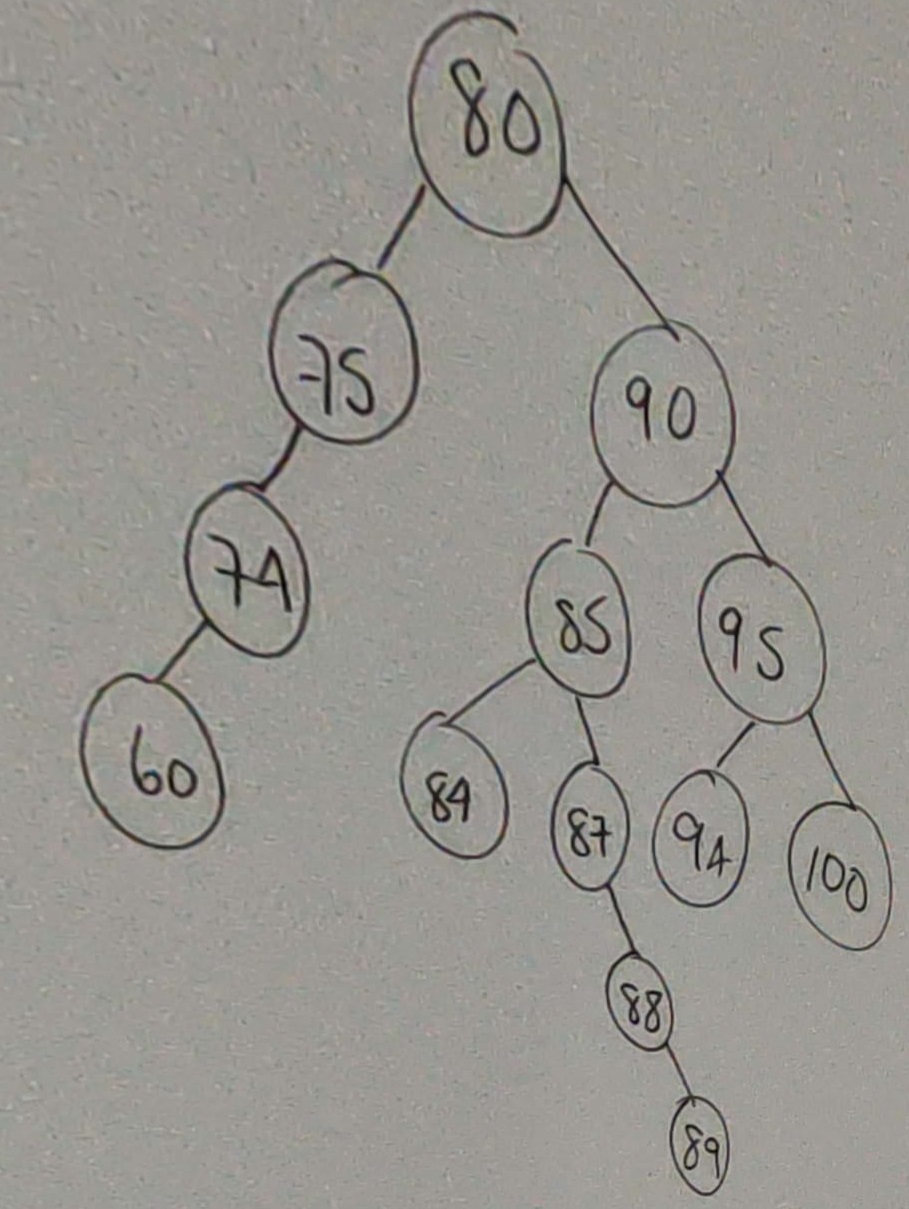 80
75
90
74
85
95
60
84
87
94
100
88
89